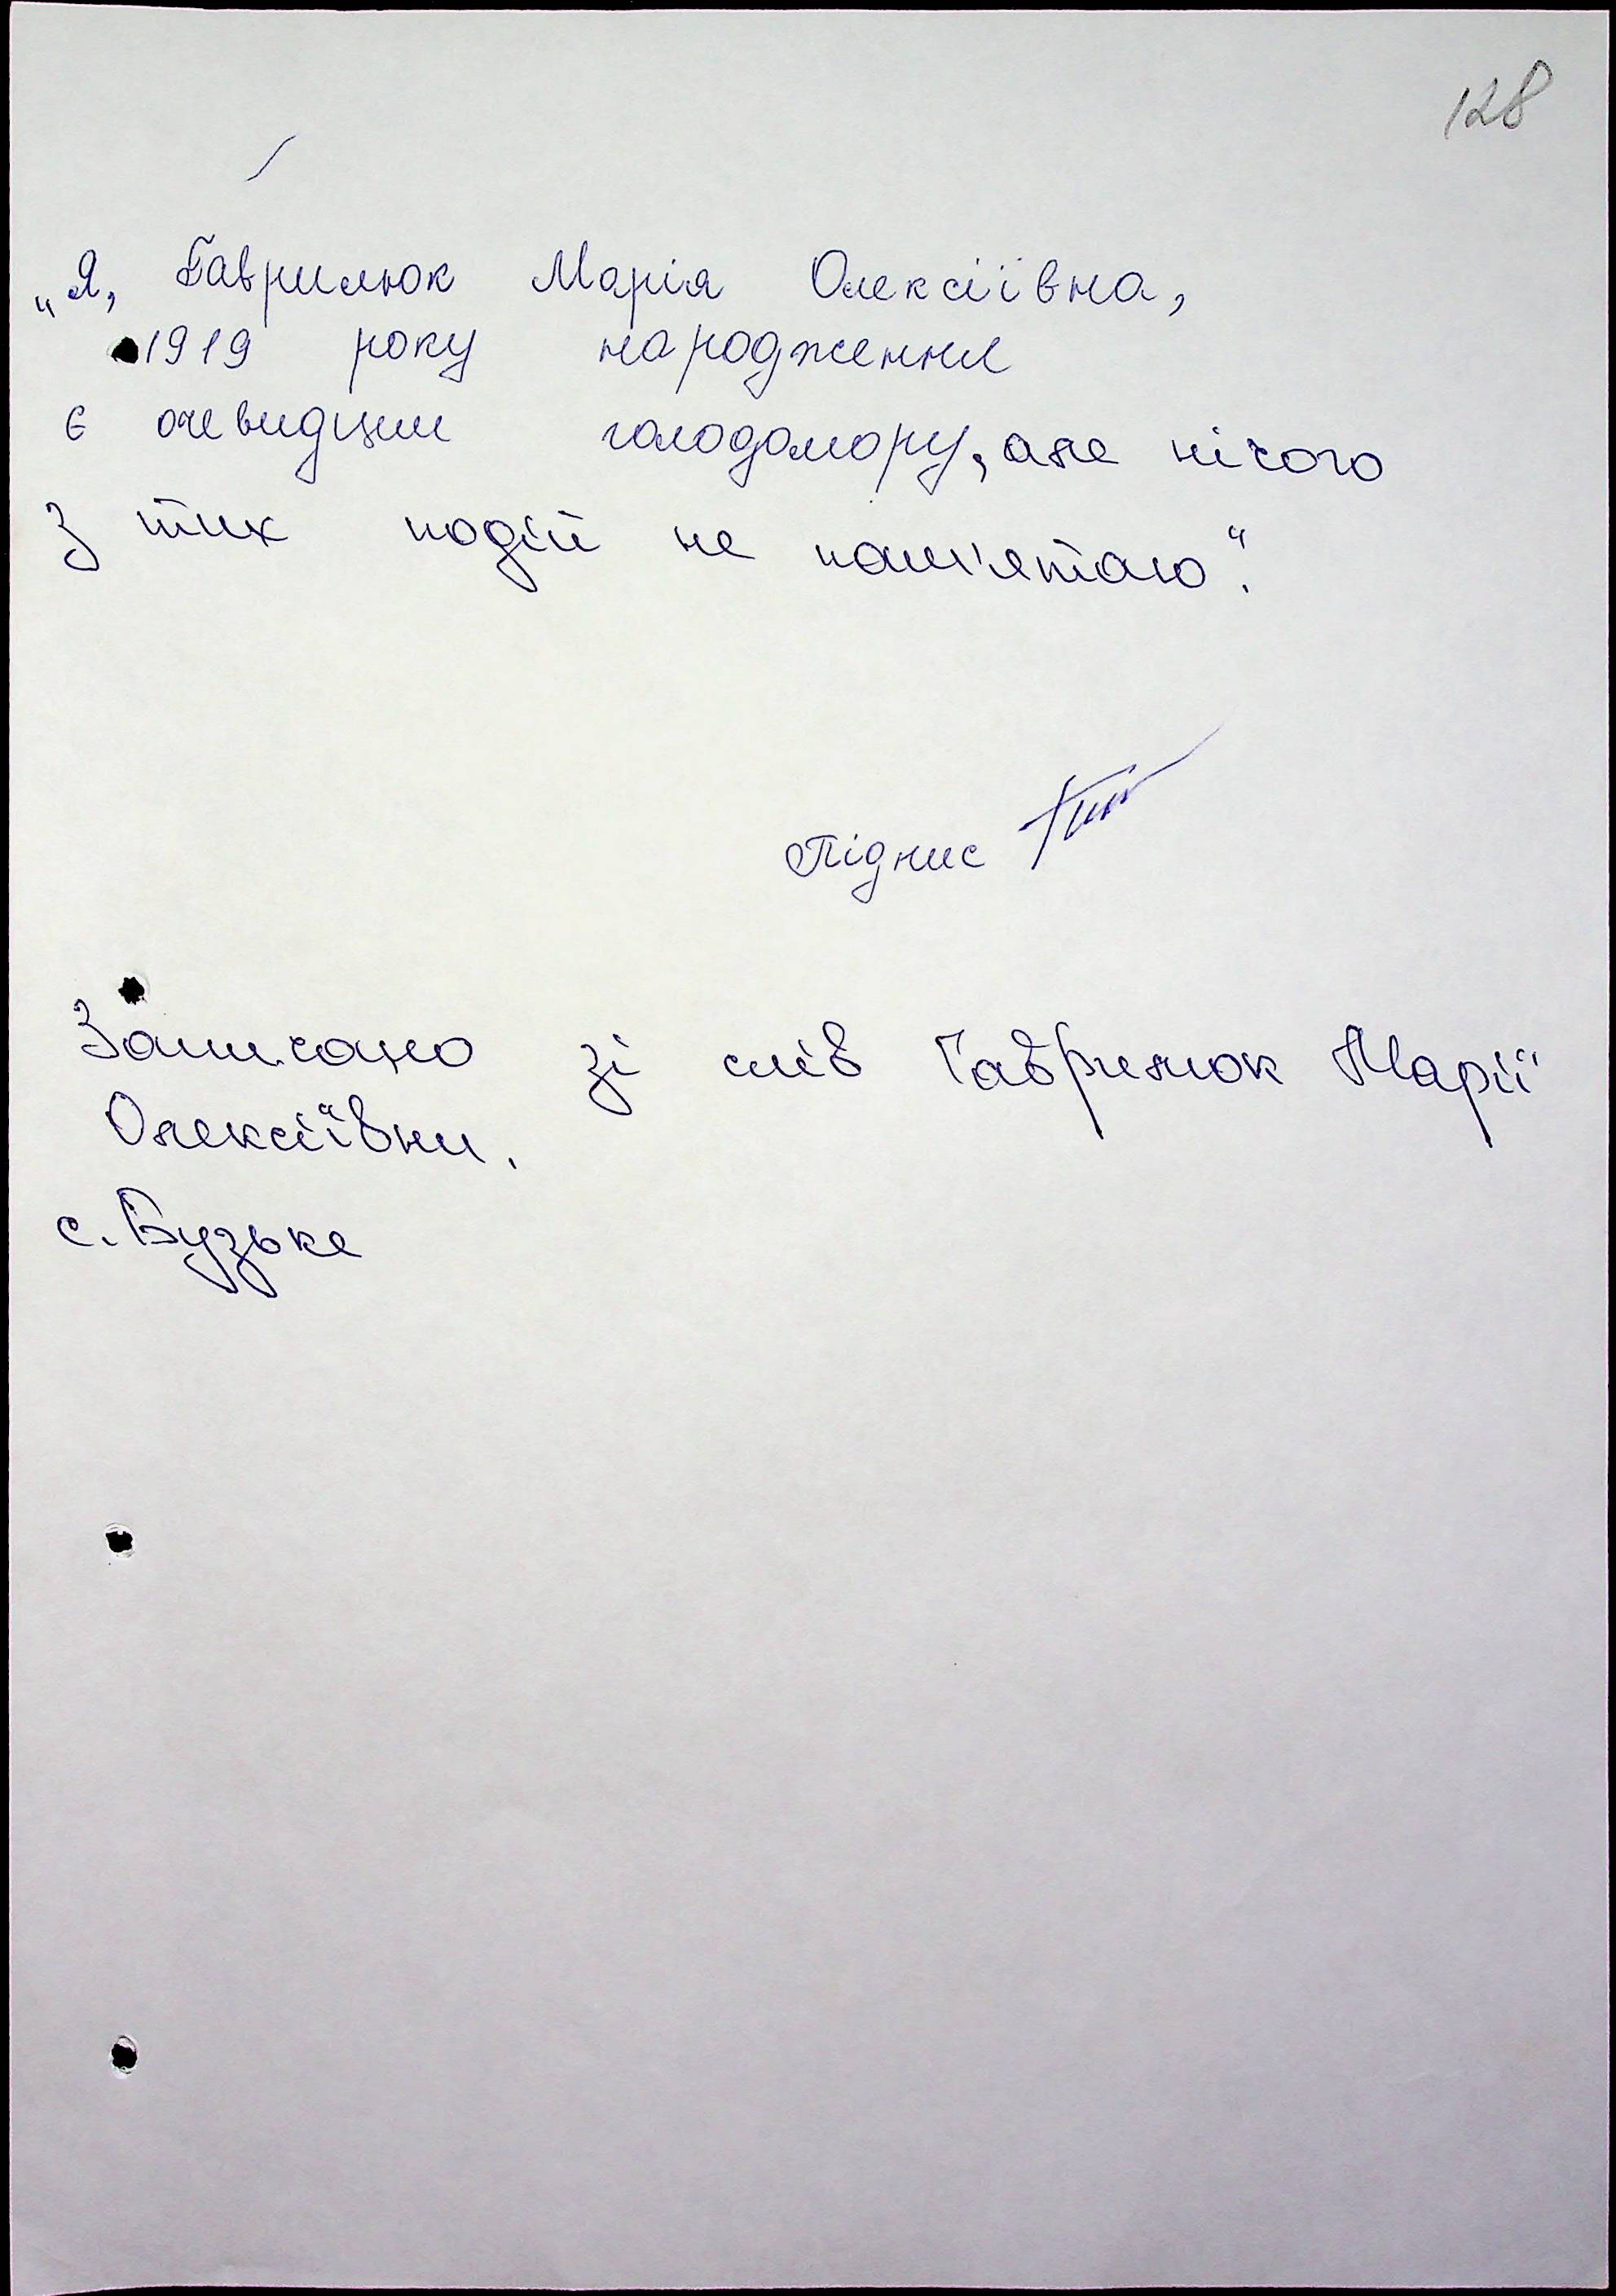 128
„Я, Гаврилюк Марія Олексіївна,
1919 року народження
є очевидцем голодомору, але нічого
з тих подій не пам'ятаю“.
Підпис
Записано зі слів Гаврилюк Марії
Олексіївни.
с. Бузьке